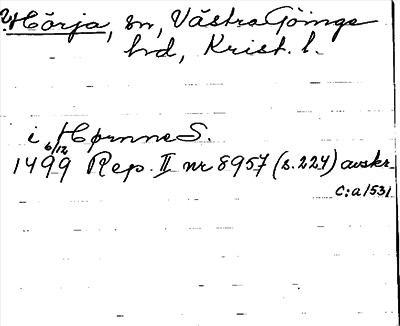 ?Hörja, sn, Västra Göinge
hd, Krist. l.
i HørnneS.
6/12
1499 Rep. II nr 8957 (s.224) avskr.
C:a 1531